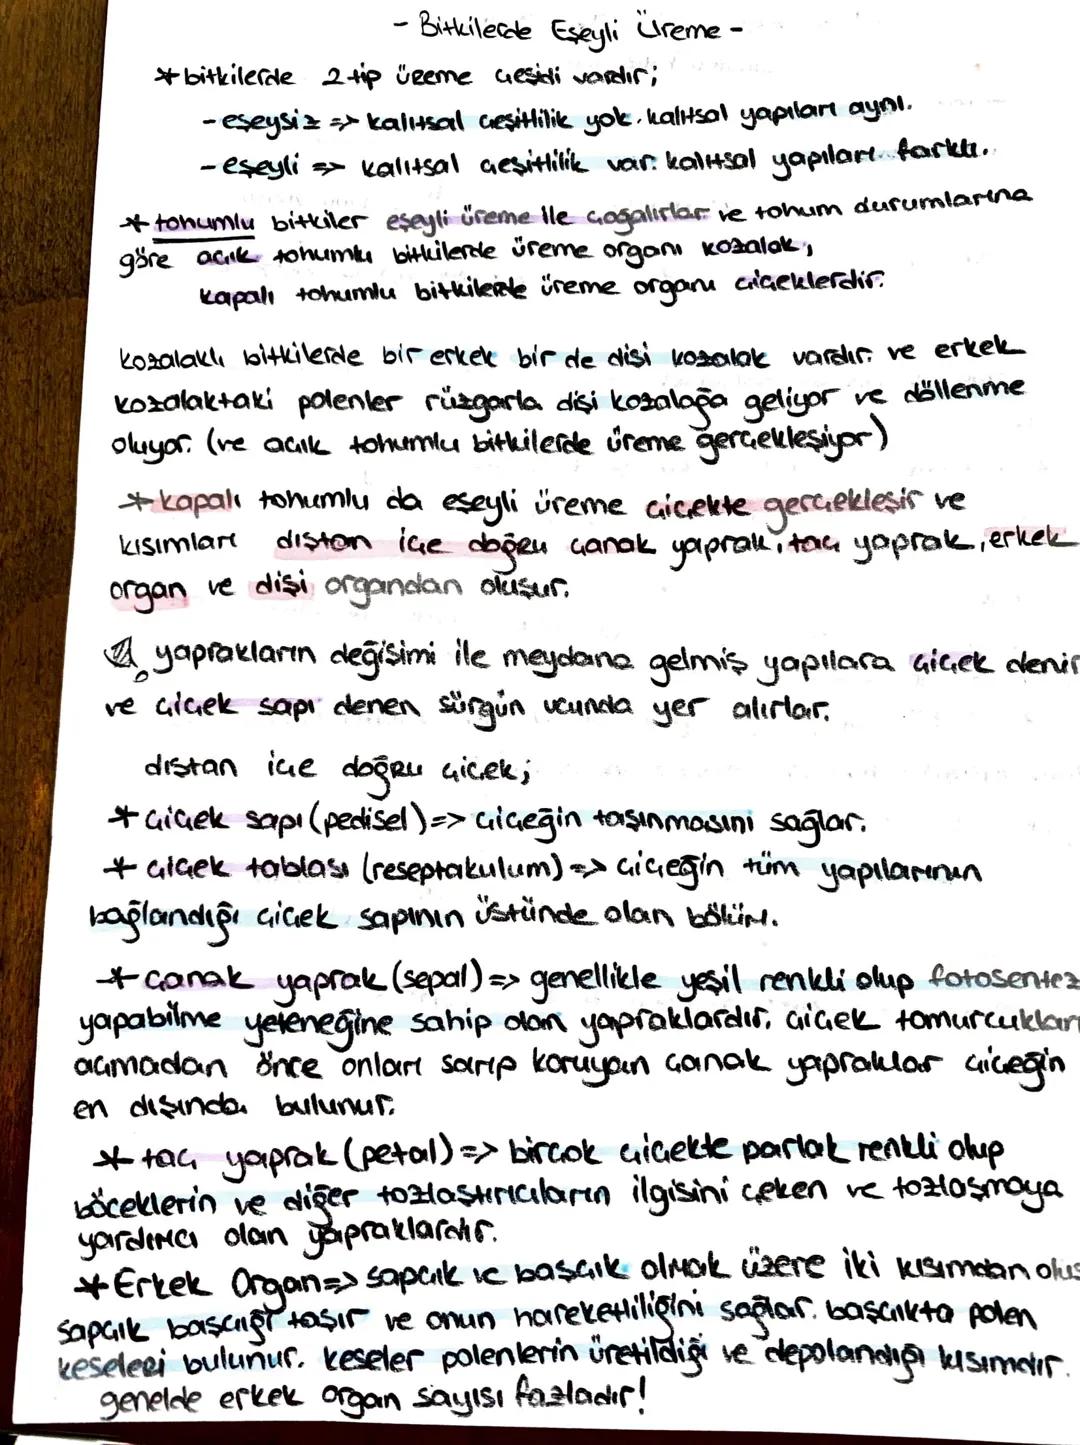 - Bitkilerde Eşeyli Üreme -
* bitkilerde 2 tip üreme çeşidi vardır;
- eşeysiz => kalıtsal çeşitlilik yok. kalıtsal yapıları aynı.
- eşeyli => kalıtsal çeşitlilik var. kalıtsal yapıları farklı.
* tohumlu bitkiler eşeyli üreme ile çoğalırlar ve tohum durumlarına
göre açık tohumlu bitkilerde üreme organı kozalak,
kapalı tohumlu bitkilerde üreme organı çiçeklerdir.
kozalaklı bitkilerde bir erkek bir de dişi kozalak vardır. ve erkek
kozalaktaki polenler rüzgarla dişi kozalağa geliyor ve döllenme
oluyor. (ve açık tohumlu bitkilerde üreme gerçekleşiyor)
* kapalı tohumlu da eşeyli üreme çiçekte gerçekleşir ve
kısımları dıştan içe doğru çanak yaprak, taç yaprak, erkek
organ ve dişi organdan oluşur.
yaprakların değişimi ile meydana gelmiş yapılara çiçek denir
ve çiçek sapı denen sürgün ucunda yer alırlar.
dıştan içe doğru çiçek;
* çiçek sapı (pedisel) => çiçeğin taşınmasını sağlar.
* çiçek tablası (reseptakulum) => çiçeğin tüm yapılarının
bağlandığı çiçek sapının üstünde olan bölüm.
* çanak yaprak (sepal) => genellikle yeşil renkli olup fotosentez
yapabilme yeteneğine sahip olan yapraklardır. çiçek tomurcukları
açmadan önce onları sarıp koruyan çanak yapraklar çiçeğin
en dışında bulunur.
* taç yaprak (petal) => birçok çiçekte parlak renkli olup
böceklerin ve diğer tozlaştırıcıların ilgisini çeken ve tozlaşmaya
yardımcı olan yapraklardır.
* Erkek Organ => sapçık ve başçık olmak üzere iki kısımdan oluş
sapçık başçığı taşır ve onun hareketliliğini sağlar. başçıkta polen
keseleri bulunur. keseler polenlerin üretildiği ve depolandığı kısımdır.
genelde erkek organ sayısı fazladır!